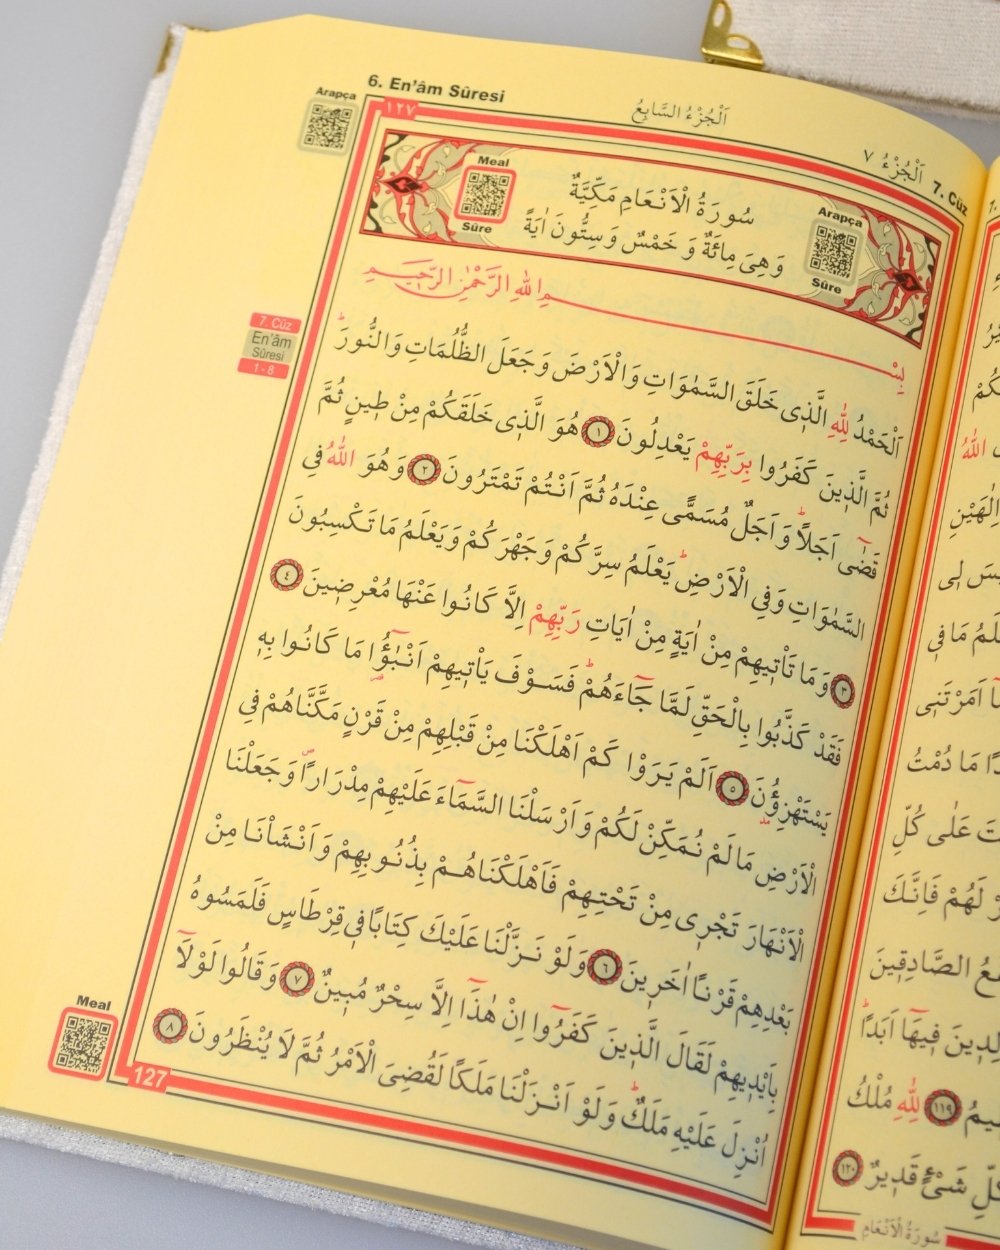 6. En'âm Sûresi
اَلْجُزْءُ السَّابِعُ
اَلْجُزْءُ ٧
7. Cüz
Arapça
١٢٧
Meal
Sûre
سُورَةُ الْاَنْعَامِ مَكِّيَّةٌ
وَهِىَ مِائَةٌ وَ خَمْسٌ وَسِتُّونَ اٰيَةً
Arapça
Sûre
بِسْمِ اللّٰهِ الرَّحْمٰنِ الرَّحٖيمِ
7. Cüz
En'âm
Sûresi
1 - 8
اَلْحَمْدُ لِلّٰهِ الَّذٖى خَلَقَ السَّمٰوَاتِ وَالْاَرْضَ وَجَعَلَ الظُّلُمَاتِ وَالنُّورَؕ
ثُمَّ الَّذٖينَ كَفَرُوا بِرَبِّهِمْ يَعْدِلُونَ ١ هُوَ الَّذٖى خَلَقَكُمْ مِنْ طٖينٍ ثُمَّ
قَضٰٓى اَجَلًاؕ وَاَجَلٌ مُسَمًّى عِنْدَهُ ثُمَّ اَنْتُمْ تَمْتَرُونَ ٢ وَهُوَ اللّٰهُ فِى
السَّمٰوَاتِ وَفِى الْاَرْضِؕ يَعْلَمُ سِرَّكُمْ وَجَهْرَكُمْ وَيَعْلَمُ مَا تَكْسِبُونَ
٣ وَمَا تَاْتٖيهِمْ مِنْ اٰيَةٍ مِنْ اٰيَاتِ رَبِّهِمْ اِلَّا كَانُوا عَنْهَا مُعْرِضٖينَ ٤
فَقَدْ كَذَّبُوا بِالْحَقِّ لَمَّا جَٓاءَهُمْؕ فَسَوْفَ يَاْتٖيهِمْ اَنْبٰٓؤُا مَا كَانُوا بِهٖ
يَسْتَهْزِؤُنَ ٥ اَلَمْ يَرَوْا كَمْ اَهْلَكْنَا مِنْ قَبْلِهِمْ مِنْ قَرْنٍ مَكَّنَّاهُمْ فِى
الْاَرْضِ مَا لَمْ نُمَكِّنْ لَكُمْ وَاَرْسَلْنَا السَّمَٓاءَ عَلَيْهِمْ مِدْرَارًاࣕ وَجَعَلْنَا
الْاَنْهَارَ تَجْرٖى مِنْ تَحْتِهِمْ فَاَهْلَكْنَاهُمْ بِذُنُوبِهِمْ وَاَنْشَاْنَا مِنْ
بَعْدِهِمْ قَرْنًا اٰخَرٖينَ ٦ وَلَوْ نَزَّلْنَا عَلَيْكَ كِتَابًا فٖى قِرْطَاسٍ فَلَمَسُوهُ
بِاَيْدٖيهِمْ لَقَالَ الَّذٖينَ كَفَرُٓوا اِنْ هٰذَٓا اِلَّا سِحْرٌ مُبٖينٌ ٧ وَقَالُوا لَوْلَٓا
اُنْزِلَ عَلَيْهِ مَلَكٌؕ وَلَوْ اَنْزَلْنَا مَلَكًا لَقُضِىَ الْاَمْرُ ثُمَّ لَا يُنْظَرُونَ ٨
Meal
127
اللّٰهُ
اِلٰهَيْنِ
مَا فٖى
اَمَرْتَنٖى
مَا دُمْتُ
عَلٰى كُلِّ
لَهُمْ فَاِنَّكَ
الصَّادِقٖينَ
فٖيهَٓا اَبَدًاؕ
١١٩ لِلّٰهِ مُلْكُ
شَىْءٍ قَدٖيرٌ ١٢٠
سُورَةُ الْاَنْعَامِ